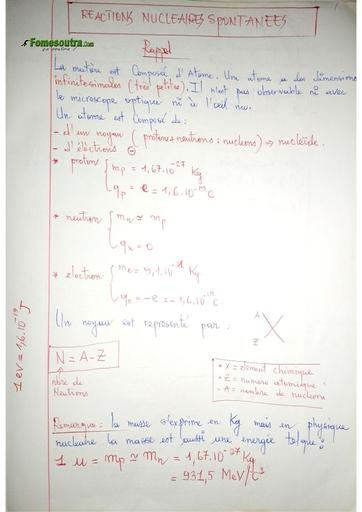 REACTIONS NUCLEAIRES SPONTANEES
Fomesoutra.com
ça soutra !
Rappel
La matière est Composé d'Atome. Une atome a des dimensions
infinitesimales (très petites). Il n'est pas observable ni avec
le microscope optique ni à l'oeil nu.
Un atome est Composé de:
- d'un noyau (protons+neutrons: nucléons) => nucléide.
- d'électrons ⊖
* proton { mp = 1,67.10^-27 Kg
qp = e = 1,6.10^-19 C
* neutron { mn ≃ mp
qn = 0
* electron { me = 9,1.10^-31 Kg
qe = -e = -1,6.10^-19 C
Un noyau est representé par : A Z X
N = A - Z
nbre de
Neutrons
* X = élément chimique
* Z = numéro atomique
* A = nombre de nucléons
1 eV = 1,6.10^-19 J
Remarque : la masse s'exprime en Kg mais en physique
nucleaire la masse est aussi une energie telque :
1 u = mp ≃ mn = 1,67.10^-27 Kg
= 931,5 MeV/C²